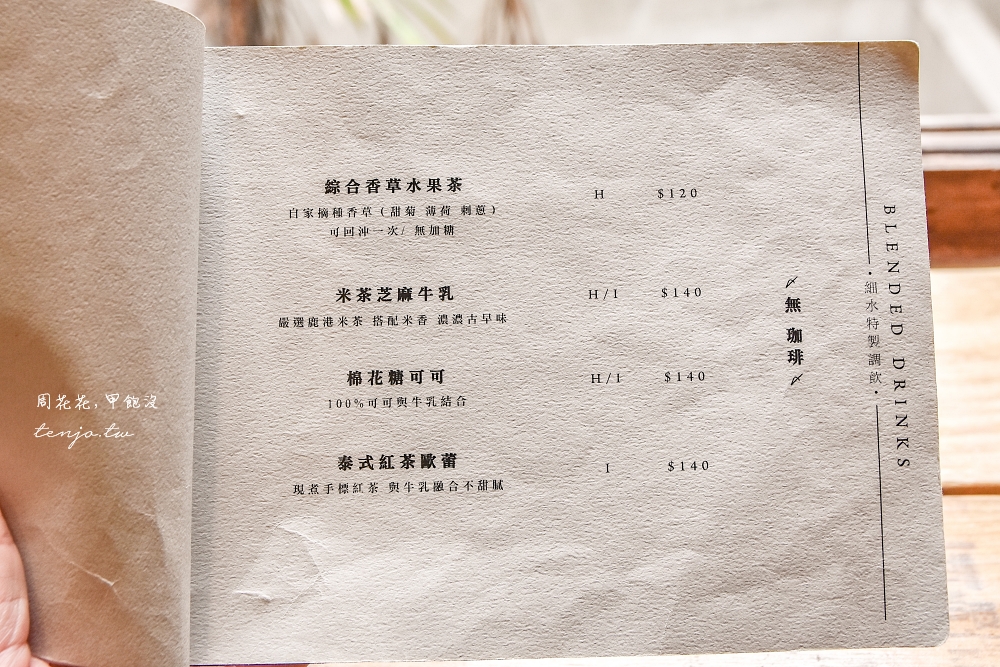 綜合香草水果茶 H $120
自家摘種香草(甜菊 薄荷 刺蔥)
可回沖一次/ 無加糖
米茶芝麻牛乳 H/I $140
嚴選鹿港米茶 搭配米香 濃濃古早味
棉花糖可可 H/I $140
100%可可與牛乳結合
泰式紅茶歐蕾 I $140
現煮手標紅茶 與牛乳融合不甜膩
〆無 珈琲〆
·細水特製調飲·
BLENDED DRINKS
周花花,甲飽沒
tenjo.tw